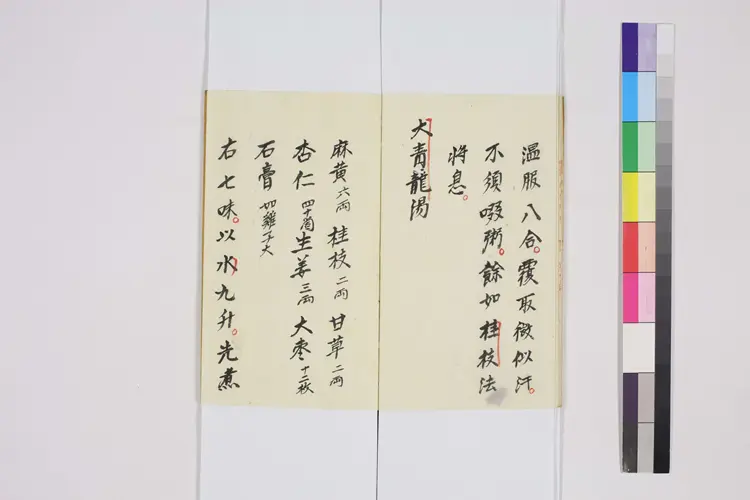 温服八合。覆取微似汗。
不須啜粥。餘如桂枝法
将息。
大青龍湯
麻黄六両 桂枝二両 甘草二両
杏仁四十箇 生姜三両 大枣十二枚
石膏如雞子大
右七味。以水九升。先煮